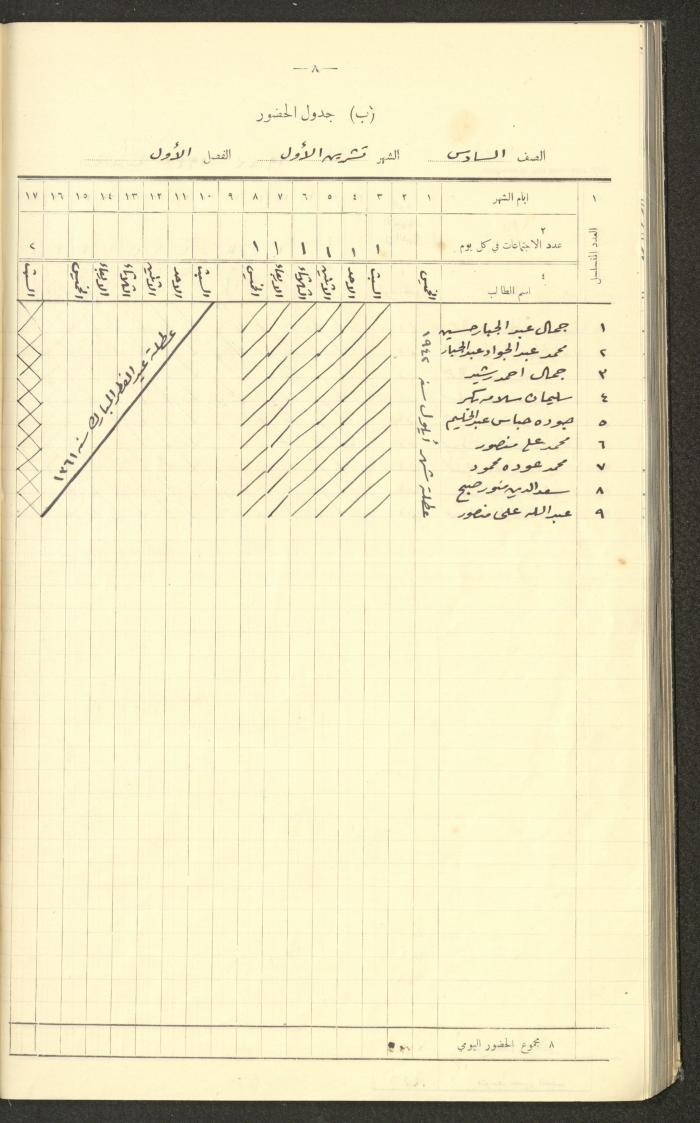 — ٨ —
(ب) جدول الحضور
الصف السادس الشهر تشرين الأول الفصل الأول
١ ايام الشهر ١ ٢ ٣ ٤ ٥ ٦ ٧ ٨ ٩ ١٠ ١١ ١٢ ١٣ ١٤ ١٥ ١٦ ١٧
العدد المتسلسل
٢
عدد الاجتماعات في كل يوم ١ ١ ١ ١ ١ ١ ٢
٤
اسم الطالب الخميس السبت الاحد الاثنين الثلاثاء الاربعاء الخميس السبت الاحد الاثنين الثلاثاء الاربعاء الخميس السبت
١ جمال عبد الجبار حسين
٢ محمد عبد الجواد عبد الجبار
٣ جمال احمد رشيد
٤ سليمان سلامه بكر
٥ جوده عباس عبد الحليم
٦ محمد علي منصور
٧ محمد عوده محمود
٨ سعد الدين منور صبح
٩ عبد الله علي منصور
عطلة شهر أيلول سنة ١٩٤٢
عطلة عيد الفطر المبارك سنه ١٣٦١
٨ مجموع الحضور اليومي